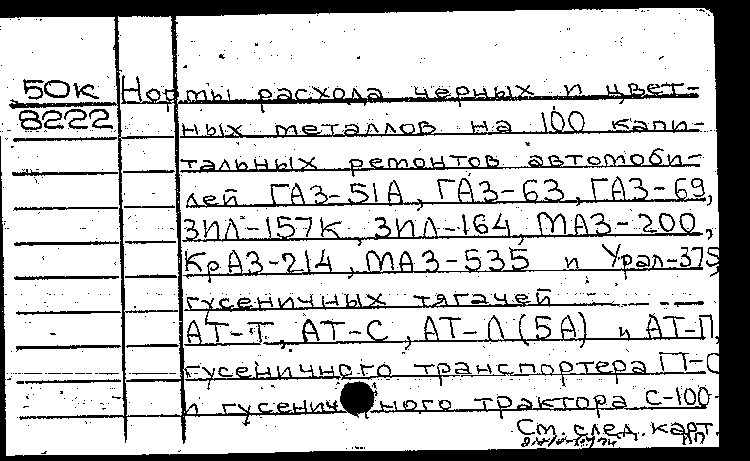 50к Нормы расхода черных и цвет-
8222 ных металлов на 100 капи-
тальных ремонтов автомоби-
лей ГАЗ-51А, ГАЗ-63, ГАЗ-69,
ЗИЛ-157К, ЗИЛ-164, МАЗ-200,
КрАЗ-214, МАЗ-535 и Урал-375,
гусеничных тягачей
АТ-Т, АТ-С, АТ-Л (5А) и АТ-П,
гусеничного транспортера
и гусеничного трактора С-100-
См. след. карт.